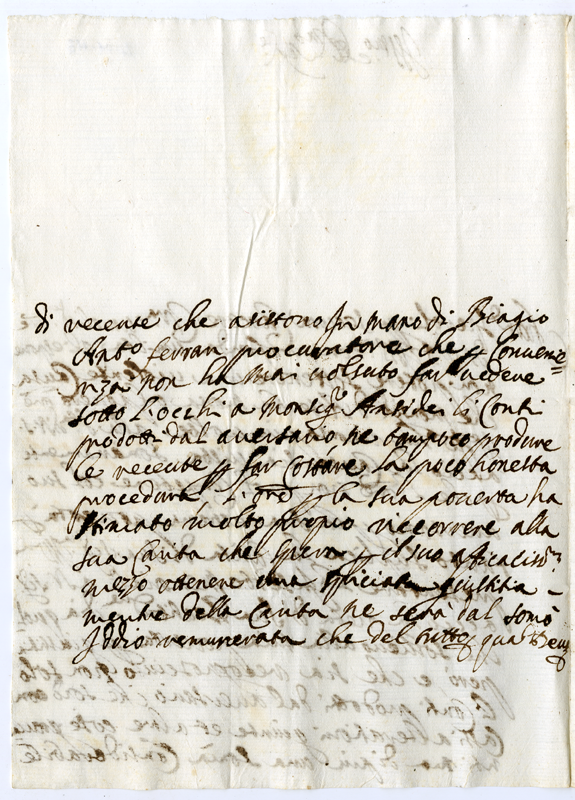 di recente che asistono in mano di Biagio
Anto ferrari procuratore che p Conveni=
nza non ha mai volsuto far vedere
sotto l'occhi a Monsigr Ansidei li Conti
prodotti dal aversario ne tampoco produre
le recente p far Costare la poco honesta
procedura l'ore p la sua poverta ha
stimato molto propio recorrere alla
sua Carita che spera p il suo
mezzo ottenere una spiciata giustitia -
mentre della Carita ne sera dal somo
Iddio remunerata che del tutto